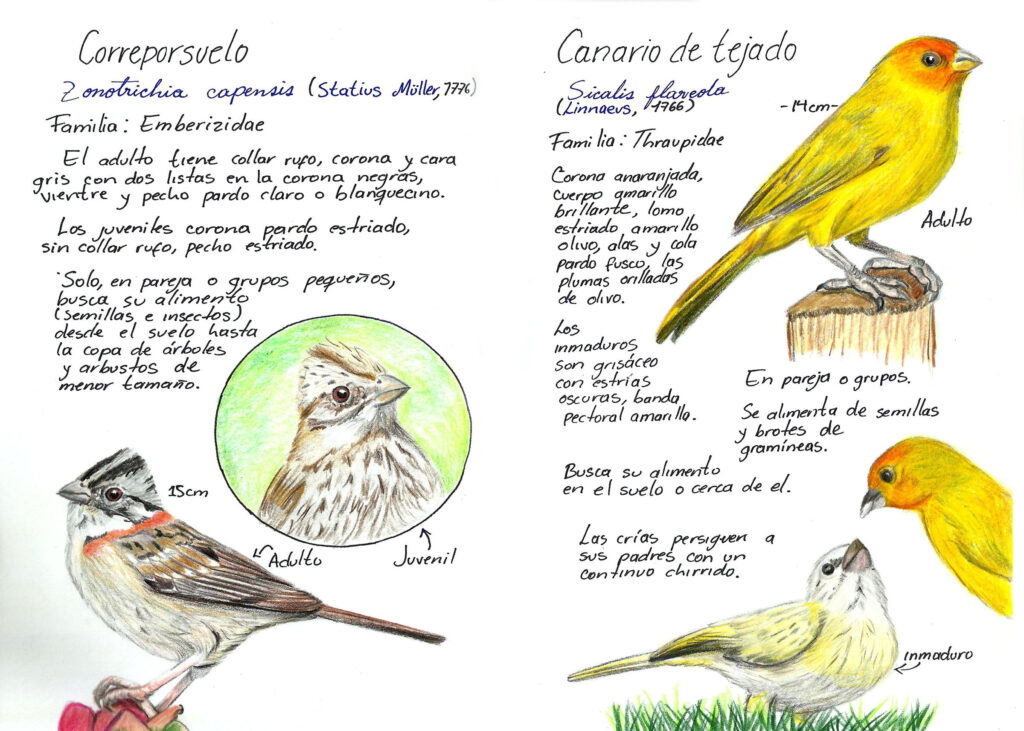 Correporsuelo
Zonotrichia capensis (Statius Müller, 1776)
Familia: Emberizidae
El adulto tiene collar rufo, corona y cara
gris con dos listas en la corona negras,
vientre y pecho pardo claro o blanquecino.
Los juveniles corona pardo estriado,
sin collar rufo, pecho estriado.
Solo, en pareja o grupos pequeños,
busca su alimento
(semillas e insectos)
desde el suelo hasta
la copa de árboles
y arbustos de
menor tamaño.
15cm
Adulto
Juvenil
Canario de tejado
Sicalis flaveola
(Linnaeus, 1766)
-14cm-
Familia: Thraupidae
Corona anaranjada,
cuerpo amarillo
brillante, lomo
estriado amarillo
olivo, alas y cola
pardo fusco, las
plumas orilladas
de olivo.
Adulto
Los
inmaduros
son grisáceo
con estrías
oscuras, banda
pectoral amarilla.
En pareja o grupos.
Se alimenta de semillas
y brotes de
gramíneas.
Busca su alimento
en el suelo o cerca de el.
Las crías persiguen a
sus padres con un
continuo chirrido.
inmaduro